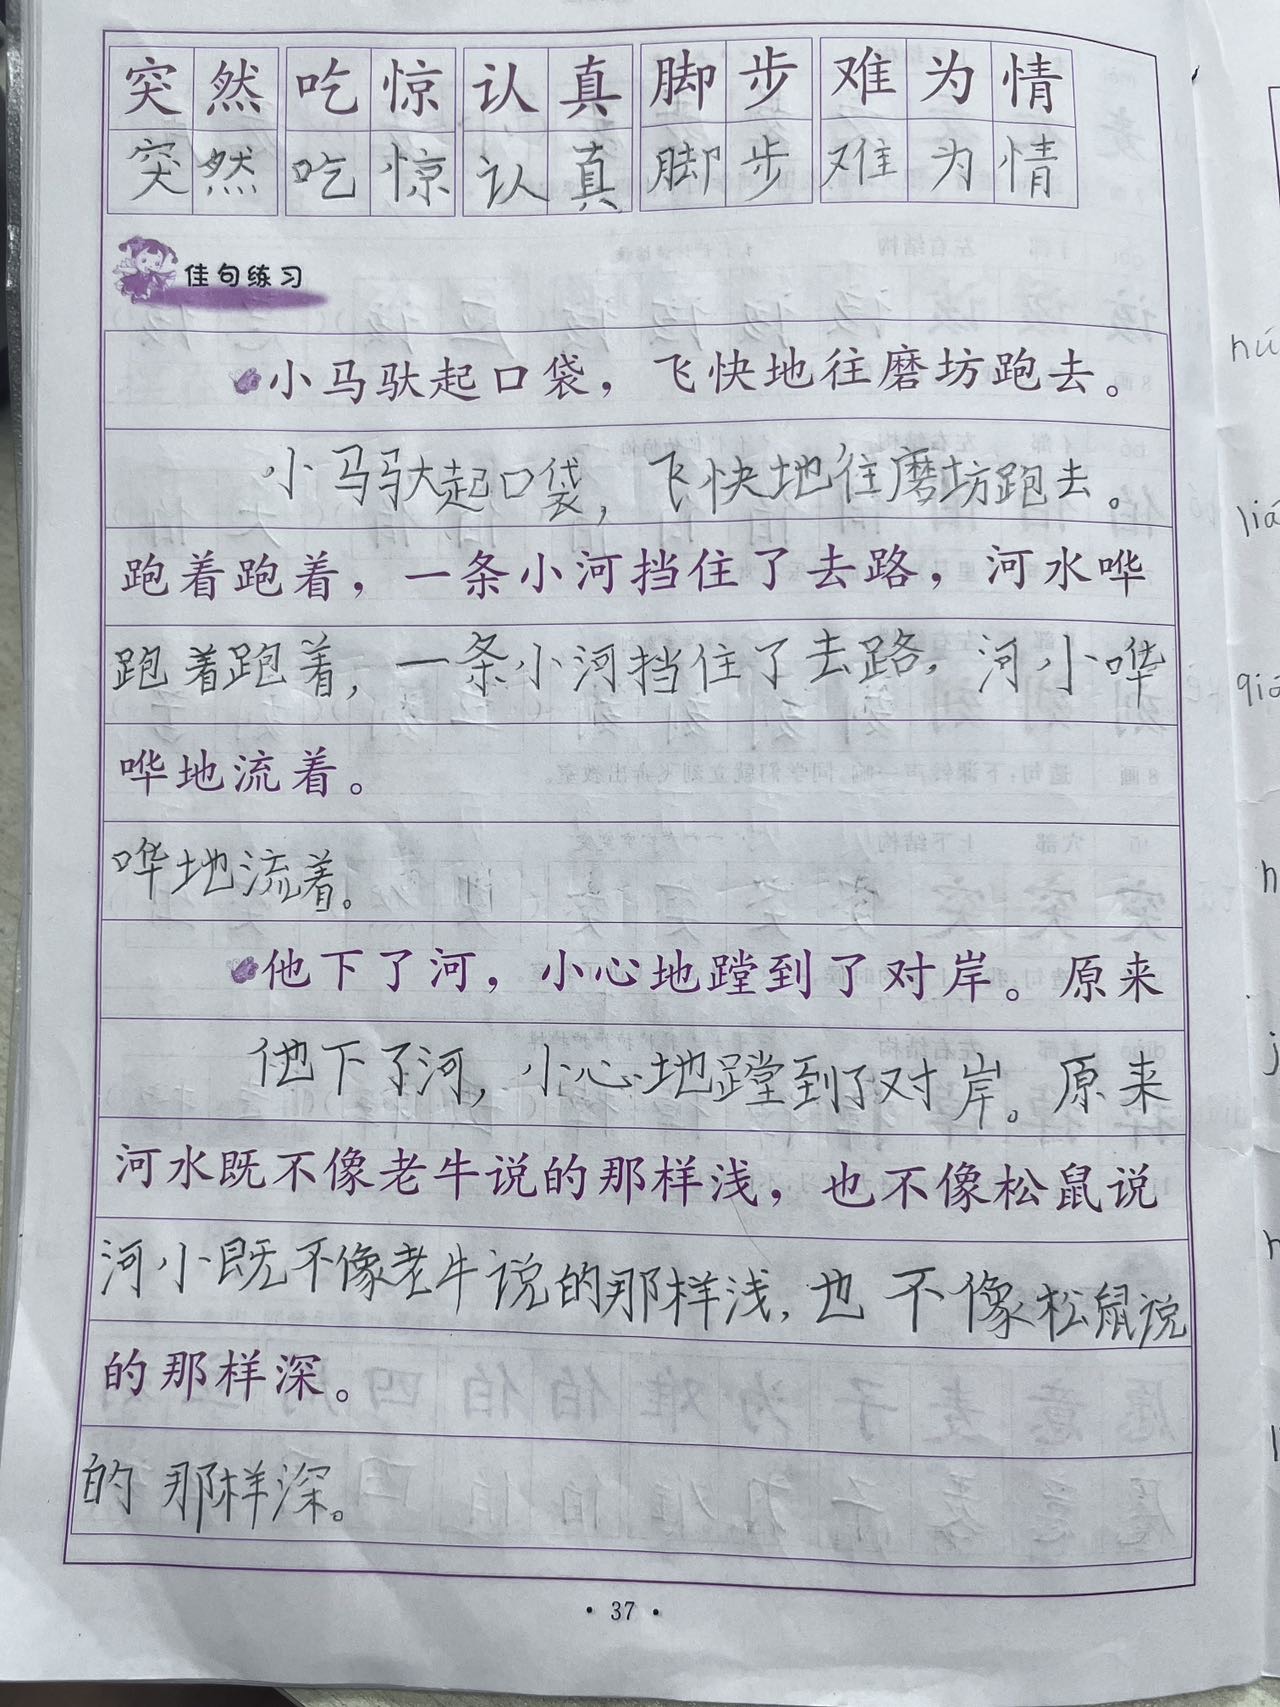 突然 吃惊 认真 脚步 难为情
突然 吃惊 认真 脚步 难为情
佳句练习
小马驮起口袋，飞快地往磨坊跑去。
小马驮起口袋，飞快地往磨坊跑去。
跑着跑着，一条小河挡住了去路，河水哗
跑着跑着，一条小河挡住了去路，河小哗
哗地流着。
哗地流着。
他下了河，小心地蹚到了对岸。原来
他下了河，小心地蹚到了对岸。原来
河水既不像老牛说的那样浅，也不像松鼠说
河小既不像老牛说的那样浅，也不像松鼠说
的那样深。
的那样深。
· 37 ·